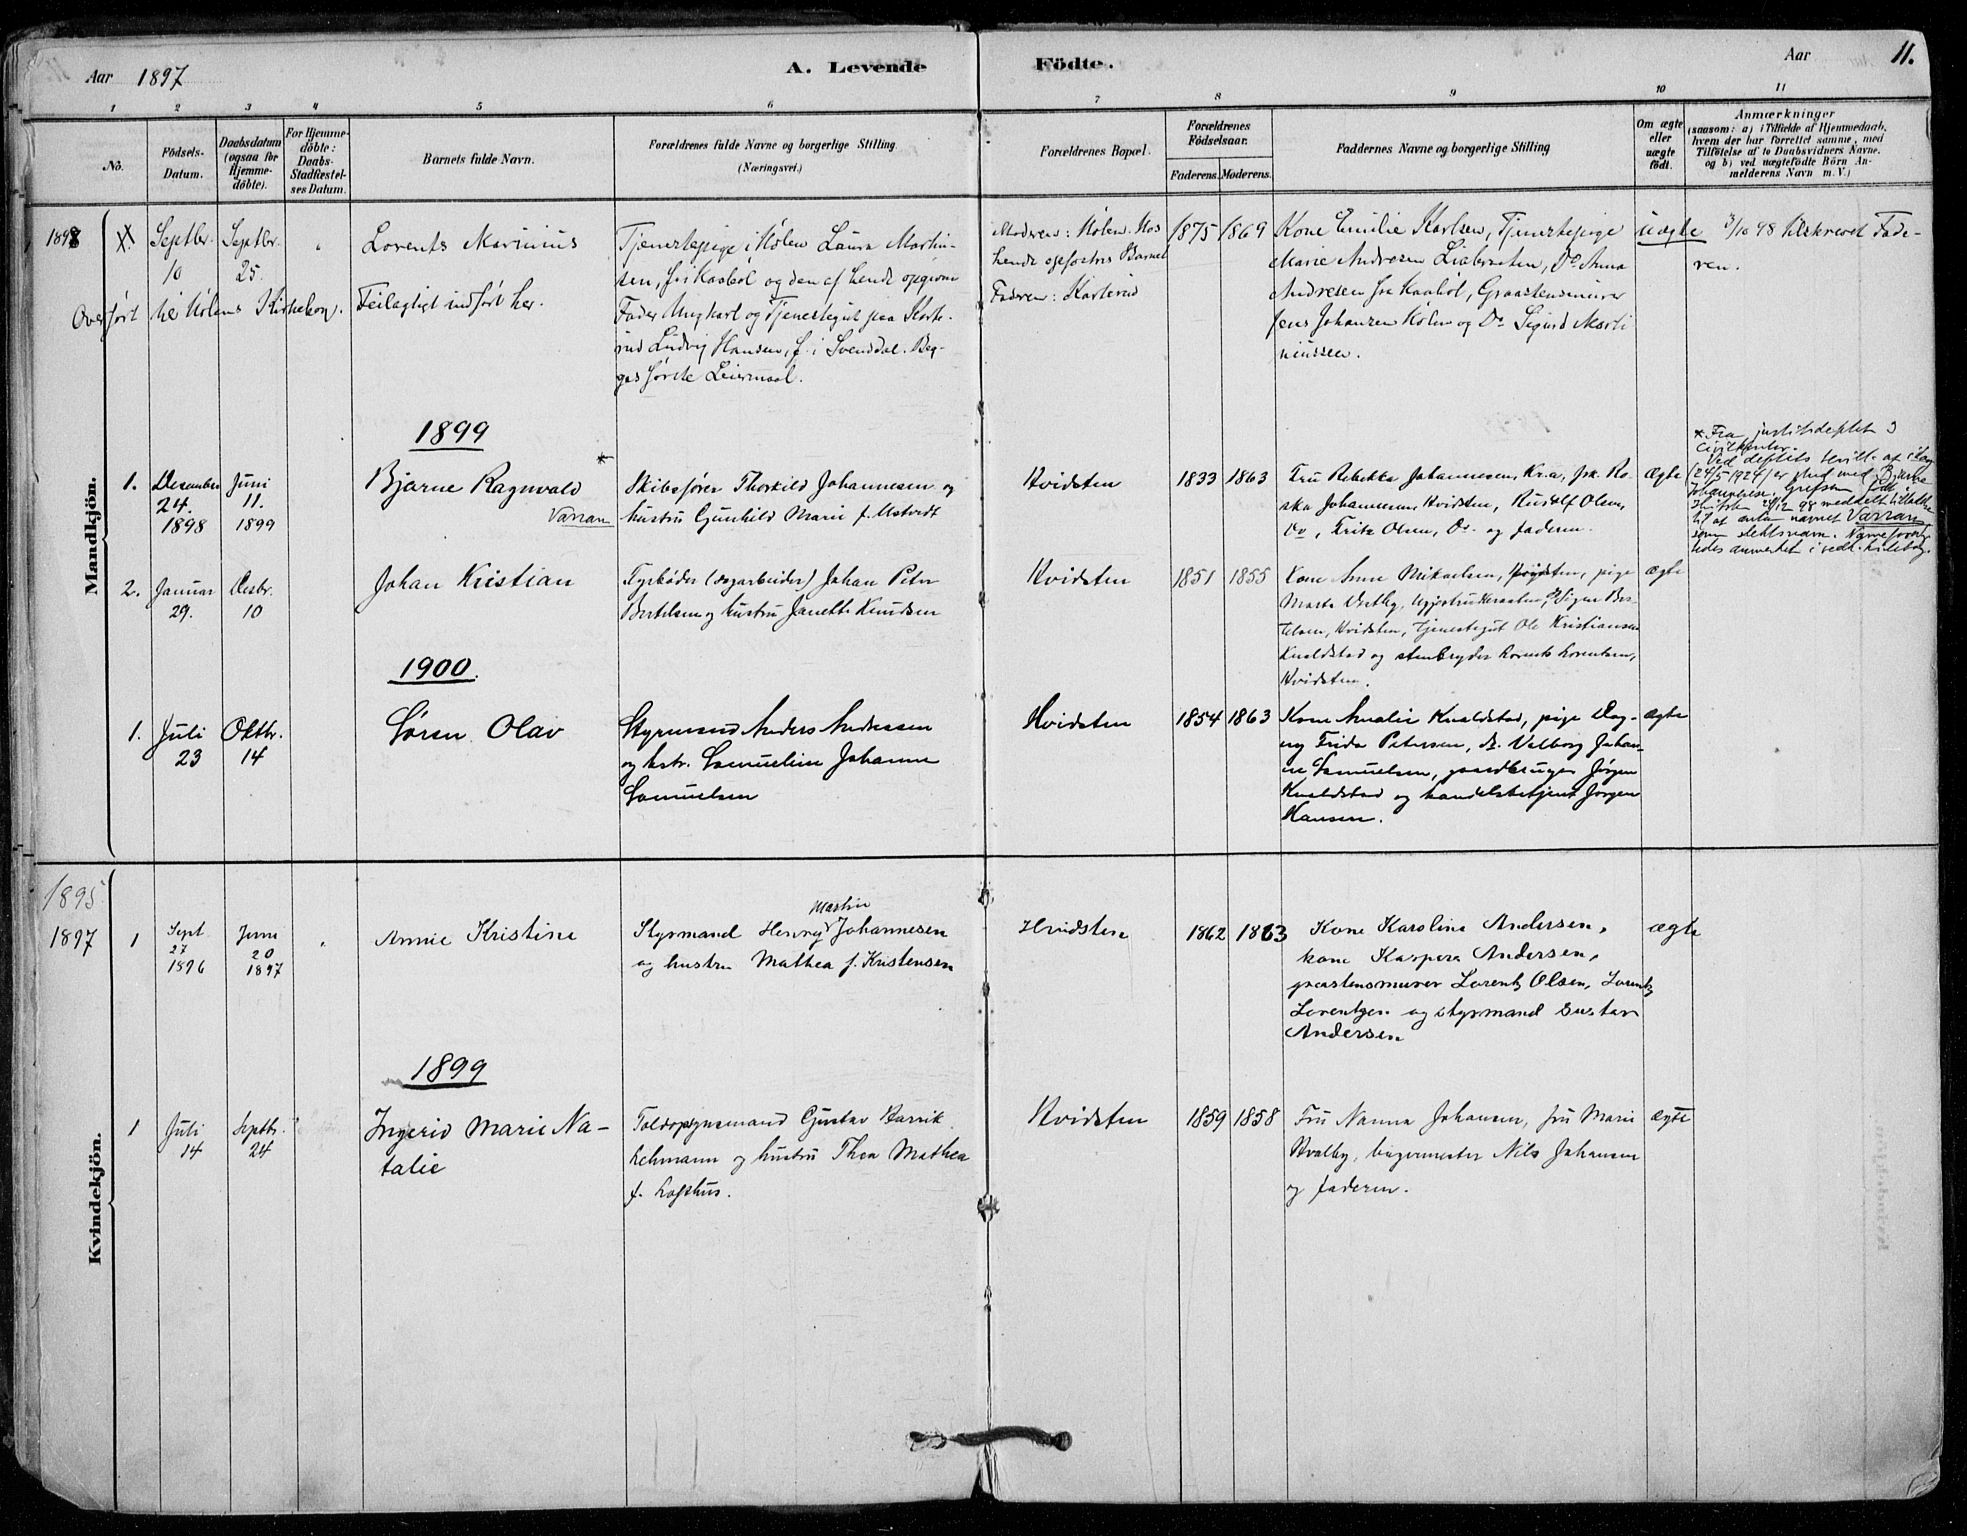 Aar 1897
A. Levende Födte.
Aar
11.
1 2 3 4 5 6 7 8 9 10 11
No.
Födsels-Datum.
Daabsdatum (ogsaa for Hjemme-döbte).
For Hjemme-döbte: Daabs-Stadfæstel-ses Datum.
Barnets fulde Navn.
Forældrenes fulde Navne og borgerlige Stilling (Næringsvei.)
Forældrenes Bopæl.
Forældrenes Födselsaar.
Faderens. Moderens.
Faddernes Navne og borgerlige Stilling
Om ægte eller uægte födt.
Anmærkninger
(saasom: a) i Tilfælde af Hjemmedaab,
hvem der har forrettet samme, med
Tilföielse af to Daabsvidners Navne.
og b) ved uægtefödte Börn An-
melderens Navn m. V.)
Mandkjön.
1898
Septbr. 10
Septbr. 25.
Lorents Marinius
Feilagtigt indført her.
Overført til Hølens Kirkebog.
Tjenestepige i Hølen Laura Martin-
sen, f. i Kaabøl og den af hende opgivne
Fader Ungkarl og Tjenestegut paa Karle-
rud Ludvig Hansen, f. i Svenddal. Beg-
ges første Leiermaal.
Moderen: Hølen. Hos
hende opfostres Barnet
Faderen: Karlerud
1875 1869
Kone Emilie Karlsen, Tjenestepige
Marie Andresen, Do Anna
Andresen fra Kaabøl, Graastensmurer
Jens Johansen Hølen og Do Sigurd Marti
niussen.
uægte
3/10 98 tilskrevet Fade-
ren.
1899
1.
Desember 24. 1898
Juni 11. 1899
Bjarne Ragnvald *
Varran
Skibsfører Thorkild Johannesen og
hustru Gunhild Marie f. Mstvedt
Hvidsten
1833 1863
Fru Rebekka Johannesen, Kr.a, frk. Ro-
ska Johannesen, Hvidsten, Rudolf Olsen,
Do, Fritz Olsen, Do og faderen.
ægte
* Fra justitsdeptet
Civilkontor
Ved deptets bevilln. af
24/5 1924 er med Bjarne
Johannesen, Grefsen, født
Hvitsten 24/12 98 meddelt tilladelse
til at anta navnet Varran
som slektsnavn. Navneforan
2.
Januar 29.
Desbr. 10
Johan Kristian
Fyrbøder (sagarbeider) Johan Peter
Bertelsen og hustru Janette Knudsen
Hvidsten
1851 1855
Kone Anne Mikaelsen, Hvidsten, pige
Marta Vestby, Do Signe Ber-
telsen, Hvidsten, tjenestegut Ole Kristiansen
Kvaldstad og stenbryder Lorents Lorentsen,
Hvidsten.
ægte
1900
1.
Juli 23
Oktbr. 14
Søren Olav
Styrmand Anders Andersen
og hstr. Samueline Johanne
Samuelsen
Hvidsten
1854 1863
Kone Amalie Kvaldstad, pige Dag-
ny Frida Petersen, do. Valborg Johan-
ne Samuelsen, gaardbruger Jørgen
Kvaldstad og handelsbetjent Jørgen
Hansen.
ægte
Kvindekjön.
1895
1897
1
Sept 27 1896
Juni 20 1897
Annie Kristine
Styrmand Henry Martin Johannesen
og hustru Mathea f. Kristensen
Hvidsten
1862 1863
Kone Karoline Andersen,
kone Kaspera Andersen,
graastensmurer Lorentz Olsen, Lorentz
Lorentzen og styrmand Gustav
Andersen
ægte
1899
1
Juli 14
Septbr. 24
Ingerid Marie Na-
talie
Toldopsynsmand Gustav Barvik
Lehmann og hustru Thea Mathea
f. Lofthus.
Hvidsten
1859 1858
Fru Nanna Johansen, fru Marie
Hvalby, bagermester Nils Johansen
og faderen.
ægte